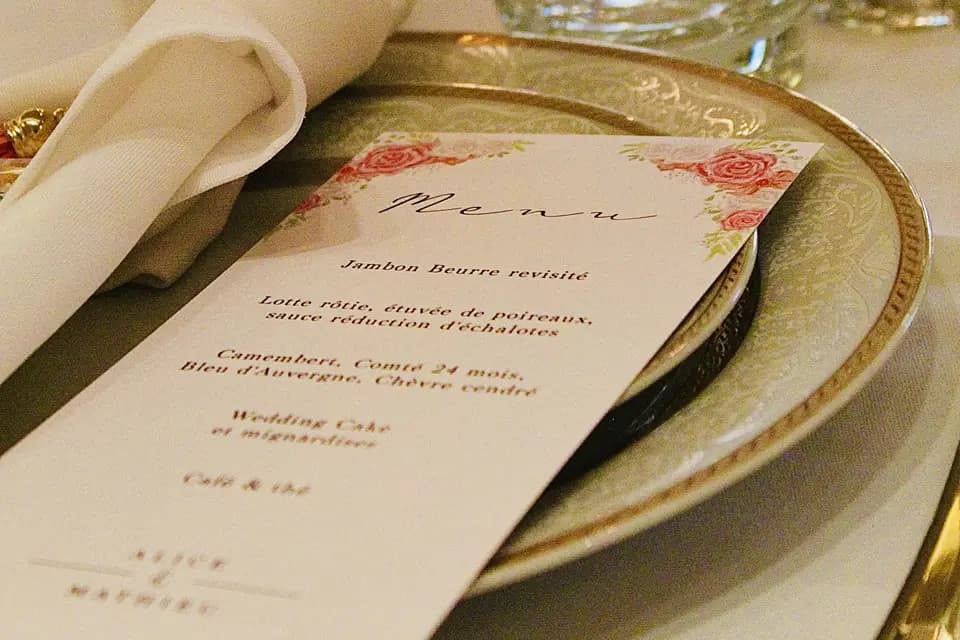 Menu
Jambon Beurre revisité
Lotte rôtie, étuvée de poireaux,
sauce réduction d'échalotes
Camembert, Comté 24 mois,
Bleu d'Auvergne, Chèvre cendré
Wedding Cake
et mignardises
Café & thé
ALICE
&
MATHIEU